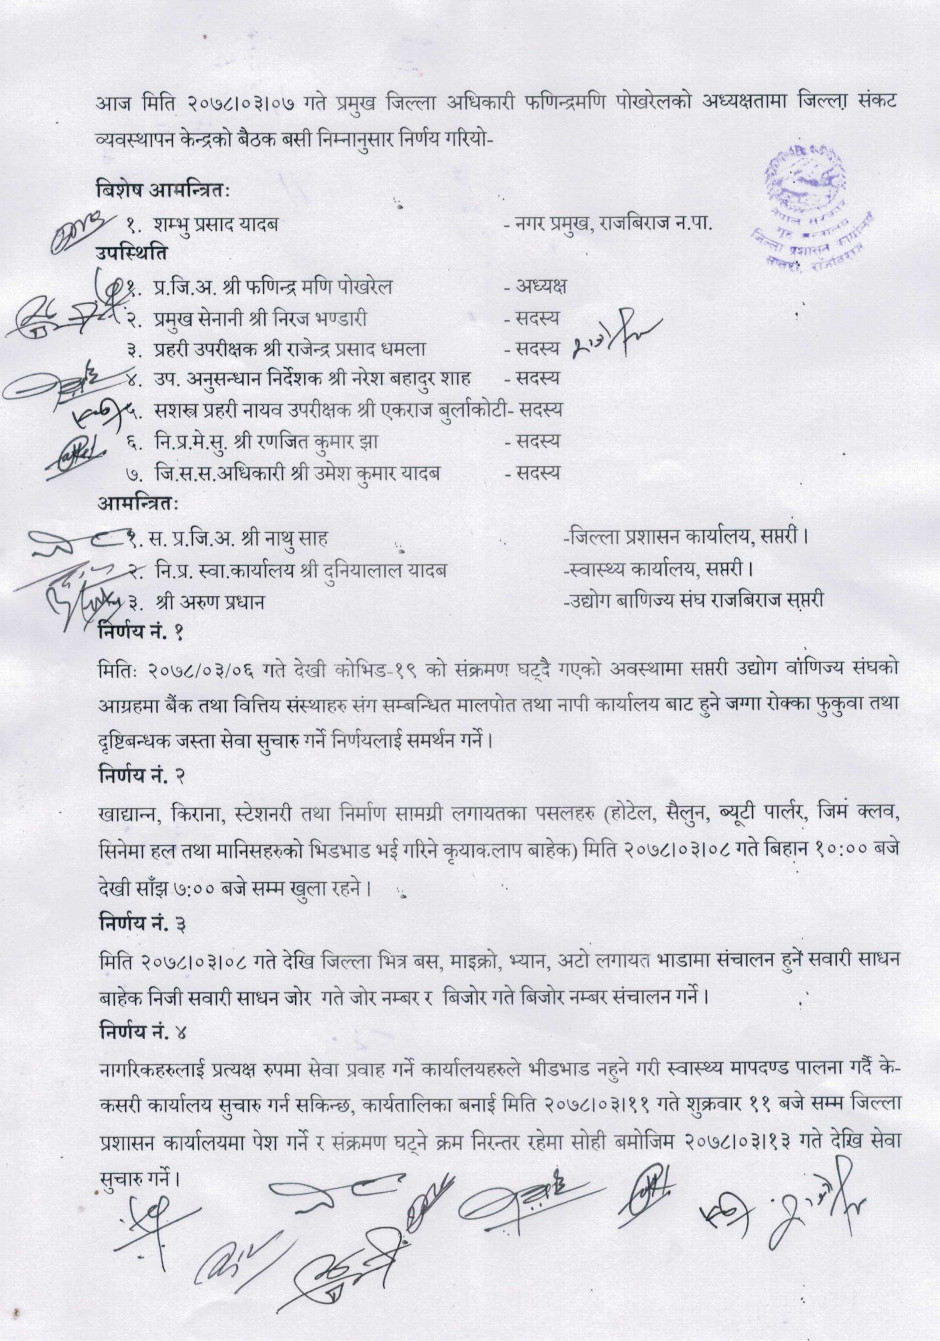 आज मिति २०७८।०३।०७ गते प्रमुख जिल्ला अधिकारी फणिन्द्रमणि पोखरेलको अध्यक्षतामा जिल्ला संकट
व्यवस्थापन केन्द्रको बैठक बसी निम्नानुसार निर्णय गरियो-
बिशेष आमन्त्रितः
१. शम्भु प्रसाद यादब - नगर प्रमुख, राजबिराज न.पा.
नेपाल सरकार
गृह मन्त्रालय
जिल्ला प्रशासन कार्यालय
सप्तरी, राजविराज
उपस्थिति
१. प्र.जि.अ. श्री फणिन्द्र मणि पोखरेल - अध्यक्ष
२. प्रमुख सेनानी श्री निरज भण्डारी - सदस्य
३. प्रहरी उपरीक्षक श्री राजेन्द्र प्रसाद धमला - सदस्य
४. उप. अनुसन्धान निर्देशक श्री नरेश बहादुर शाह - सदस्य
५. सशस्त्र प्रहरी नायव उपरीक्षक श्री एकराज बुर्लाकोटी- सदस्य
६. नि.प्र.मे.सु. श्री रणजित कुमार झा - सदस्य
७. जि.स.स.अधिकारी श्री उमेश कुमार यादब - सदस्य
आमन्त्रितः
१. स. प्र.जि.अ. श्री नाथु साह -जिल्ला प्रशासन कार्यालय, सप्तरी ।
२. नि.प्र. स्वा.कार्यालय श्री दुनियालाल यादब -स्वास्थ्य कार्यालय, सप्तरी ।
३. श्री अरुण प्रधान -उद्योग बाणिज्य संघ राजबिराज सप्तरी
निर्णय नं. १
मितिः २०७८/०३/०६ गते देखी कोभिड-१९ को संक्रमण घट्दै गएको अवस्थामा सप्तरी उद्योग वाणिज्य संघको
आग्रहमा बैंक तथा वित्तिय संस्थाहरु संग सम्बन्धित मालपोत तथा नापी कार्यालय बाट हुने जग्गा रोक्का फुकुवा तथा
दृष्टिबन्धक जस्ता सेवा सुचारु गर्ने निर्णयलाई समर्थन गर्ने ।
निर्णय नं. २
खाद्यान्न, किराना, स्टेशनरी तथा निर्माण सामग्री लगायतका पसलहरु (होटेल, सैलुन, ब्यूटी पार्लर, जिम क्लव,
सिनेमा हल तथा मानिसहरुको भिडभाड भई गरिने कृयाकलाप बाहेक) मिति २०७८।०३।०८ गते बिहान १०:०० बजे
देखी साँझ ७:०० बजे सम्म खुला रहने ।
निर्णय नं. ३
मिति २०७८।०३।०८ गते देखि जिल्ला भित्र बस, माइक्रो, भ्यान, अटो लगायत भाडामा संचालन हुने सवारी साधन
बाहेक निजी सवारी साधन जोर गते जोर नम्बर र बिजोर गते बिजोर नम्बर संचालन गर्ने ।
निर्णय नं. ४
नागरिकहरुलाई प्रत्यक्ष रुपमा सेवा प्रवाह गर्ने कार्यालयहरुले भीडभाड नहुने गरी स्वास्थ्य मापदण्ड पालना गर्दै के-
कसरी कार्यालय सुचारु गर्न सकिन्छ, कार्यतालिका बनाई मिति २०७८।०३।११ गते शुक्रवार ११ बजे सम्म जिल्ला
प्रशासन कार्यालयमा पेश गर्ने र संक्रमण घट्ने क्रम निरन्तर रहेमा सोही बमोजिम २०७८।०३।१३ गते देखि सेवा
सुचारु गर्ने ।